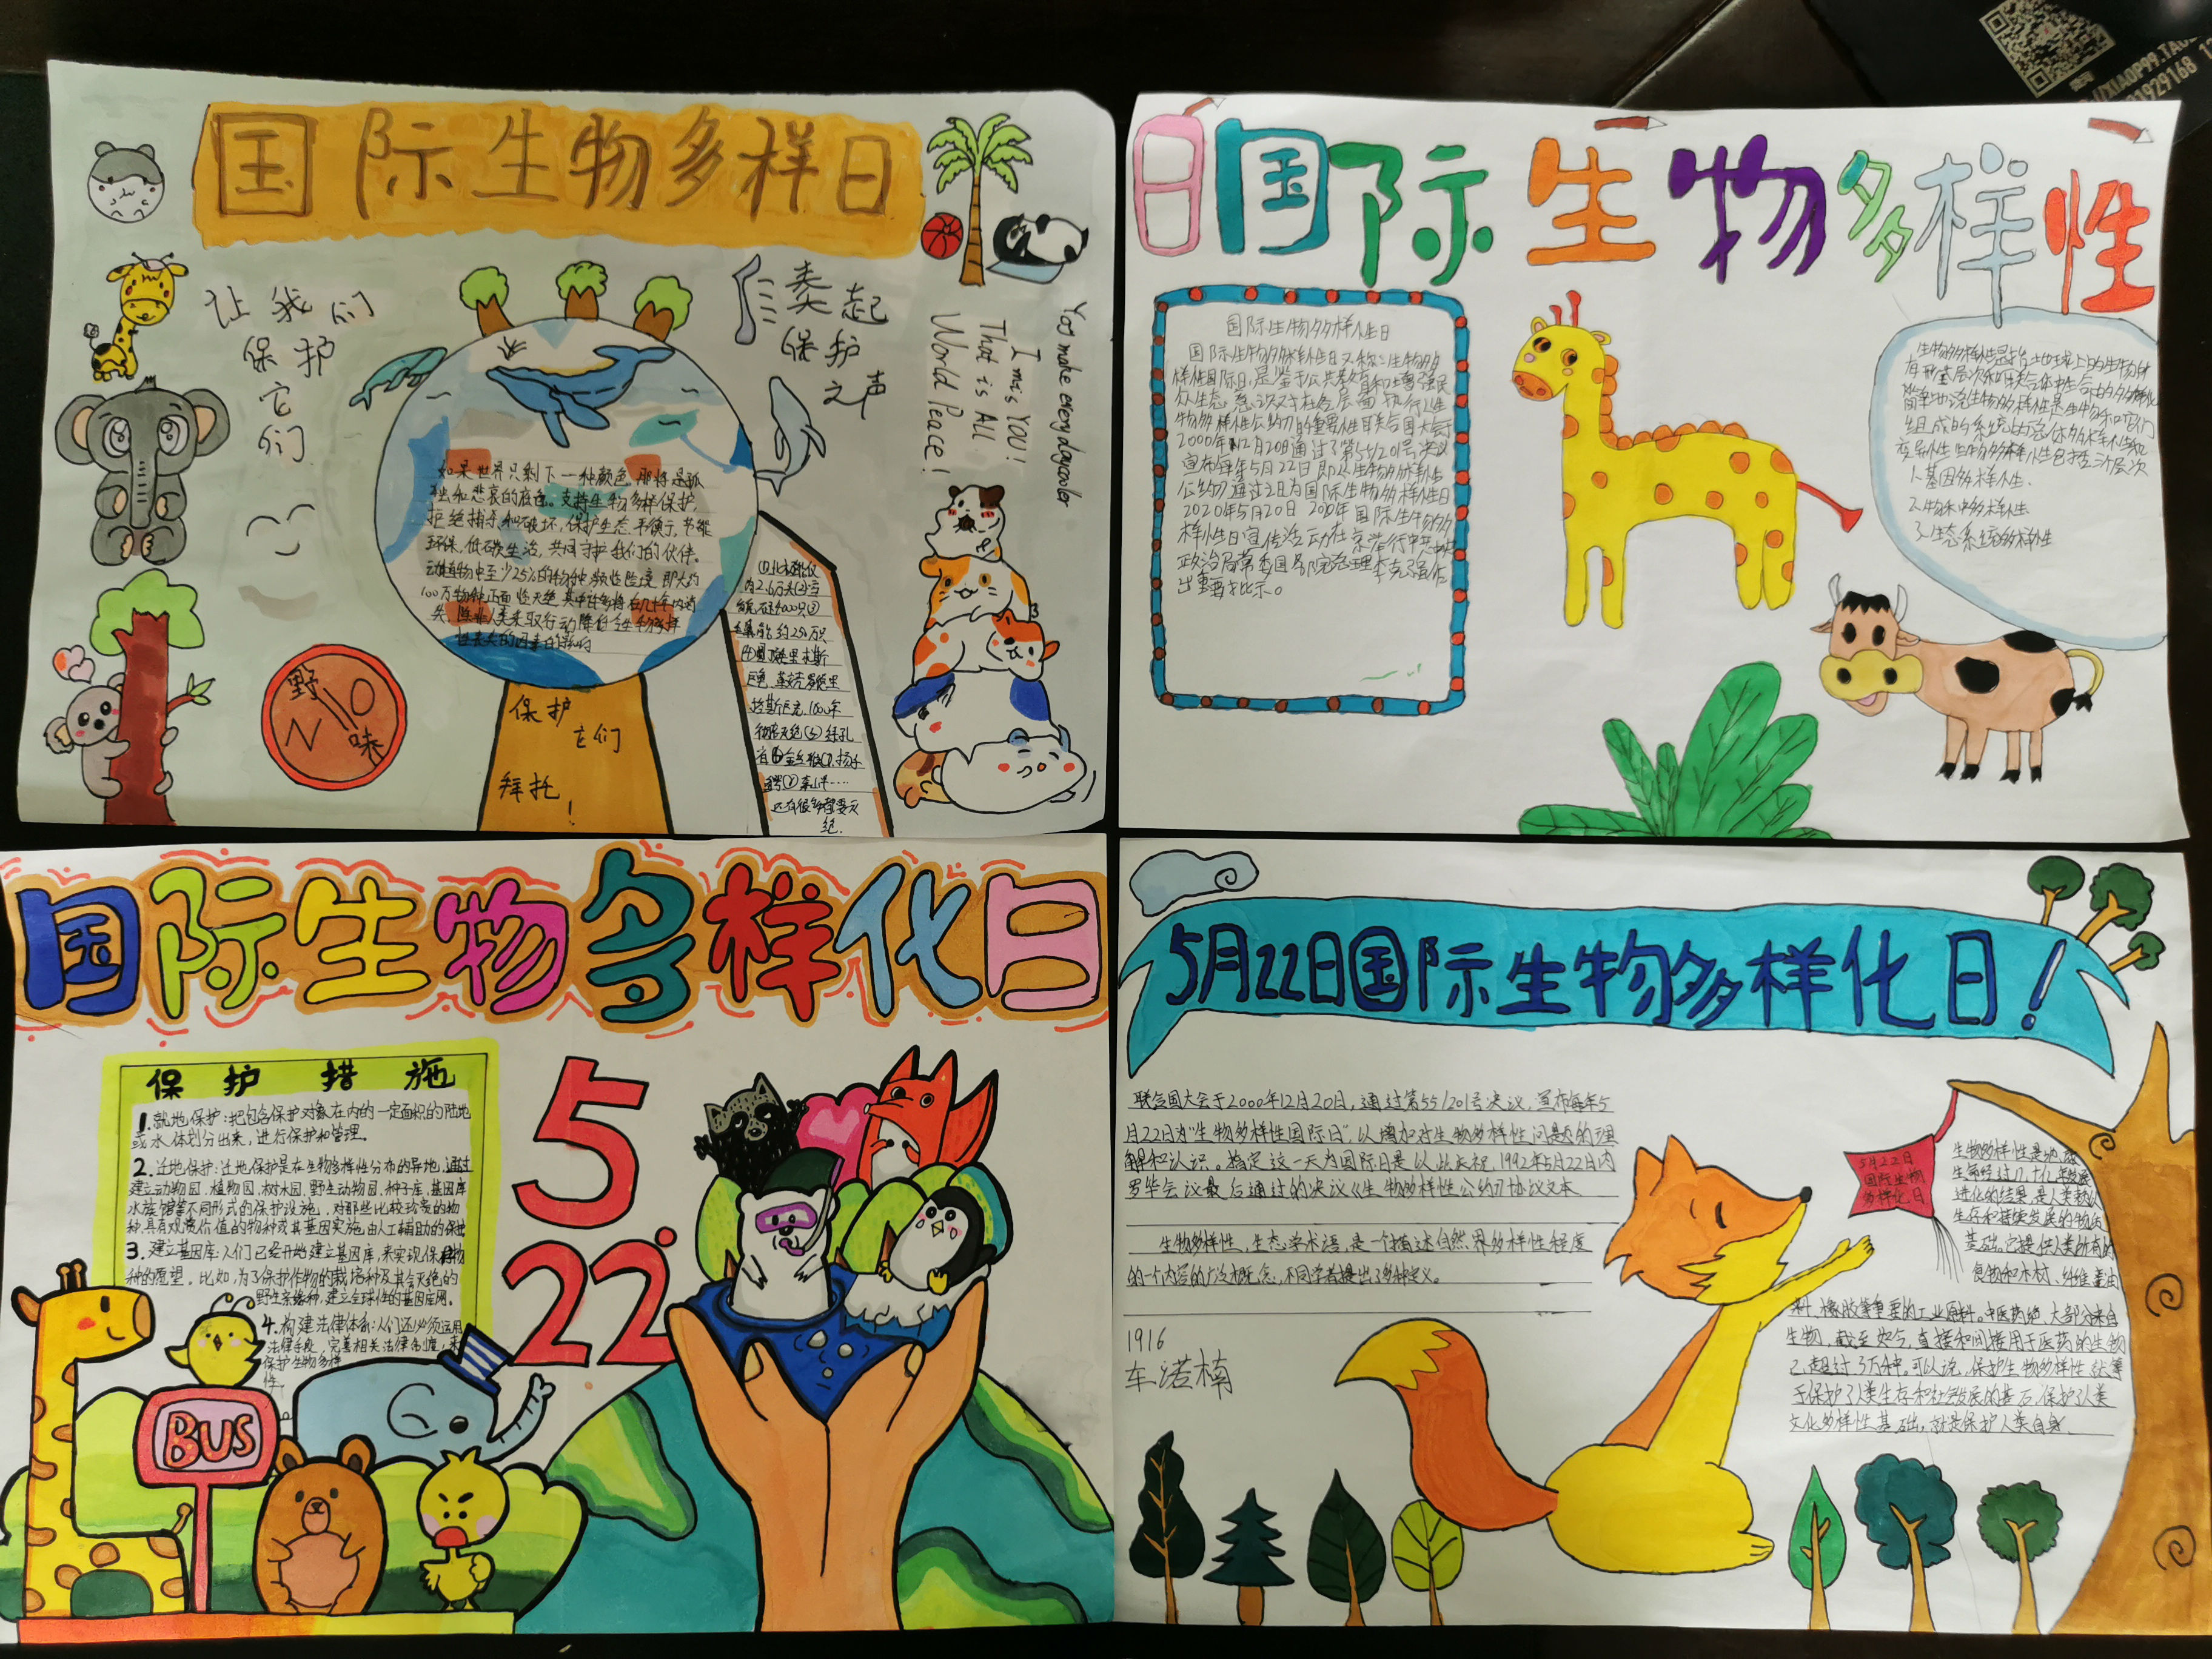 国际生物多样日
让我们
保护
它
们
一类起
保护
之声
You make every day cooler
I ms YOU!
That is All
World Peace!
如果世界只剩下一种颜色,那将是孤
独和悲哀的底色。支持生物多样保护,
拒绝捕杀和破坏,保护生态平衡于,节能
环保,低碳生活,共同守护我们的伙伴。
动植物中至少25%的物种
100万物种正面
失,除非人类采取行动降低
性丧失的因素的影响
野
NO
味
保护
它们
拜托
!
还有很多都要灭
绝.
日国际生物多样性
国际生物多样性日
国际生物多样性日又称:生物多
样性国际日,是
物多样性公约》的重要性联合国大会于
2000年12月20日通过了第55/201号决议
宣布每年5月22日即《生物多样性
公约》通过之日为国际生物多样性日
2020年5月20日 2020年国际生物多
样性日宣传活动在京举行中共中央
政治局常委国务院总理李克强作
出重要批示。
生物多样性是指地球上的生物所
简单地说生物多样性是生物和它们
组成的系统的总体多样性和
变异性生物多样性包括三个层次
1.基因多样性.
2.物种多样性
3.生态系统多样性
国际生物多样化日
保护措施
1.就地保护:把包含保护对象在内的一定面积的陆地
或水体划分出来,进行保护和管理。
2.迁地保护:迁地保护是在生物多样性分布的异地,通过
建立动物园、植物园、树木园、野生动物园、种子库、基因库
水族馆等不同形式的保护设施,对那些比较珍贵的物
种、具有观赏价值的物种或其基因实施由人工辅助的保护
3.建立基因库:人们已经开始建立基因库,来实现保存物
种的愿望。比如,为了保护作物的栽培种及其会灭绝的
野生亲缘种,建立全球性的基因库网。
4.构建法律体系:人们还必须运用
法律手段,完善相关法律制度,来
保护生物多样
性。
5.
22
BUS
5月22日国际生物多样化日!
联合国大会于2000年12月20日,通过第55/201号决议,宣布每年5
月22日为"生物多样性国际日",以增加对生物多样性问题的理
解和认识。指定这一天为国际日是以此庆祝,1992年5月22日内
罗毕会议最后通过的决议《生物多样性公约》协议文本
生物多样性,生态学术语,是一个描述自然界多样性程度
的一个内容的广泛概念,不同学者提出了多种定义。
1916
车诺楠
5月22日
国际生物
多样化日
生物多样性是地球
生命经过几十亿年发展
进化的结果,是人类赖以
生存和持续发展的物质
基础。它提供人类所有的
食物和木材、纤维、油
料、橡胶等重要的工业原料。中医药绝大部分来自
生物,截至如今,直接和间接用于医药的生物
已超过3万种。可以说,保护生物多样性就等
于保护了人类生存和社会发展的基石,保护了人类
文化多样性基础,就是保护人类自身.